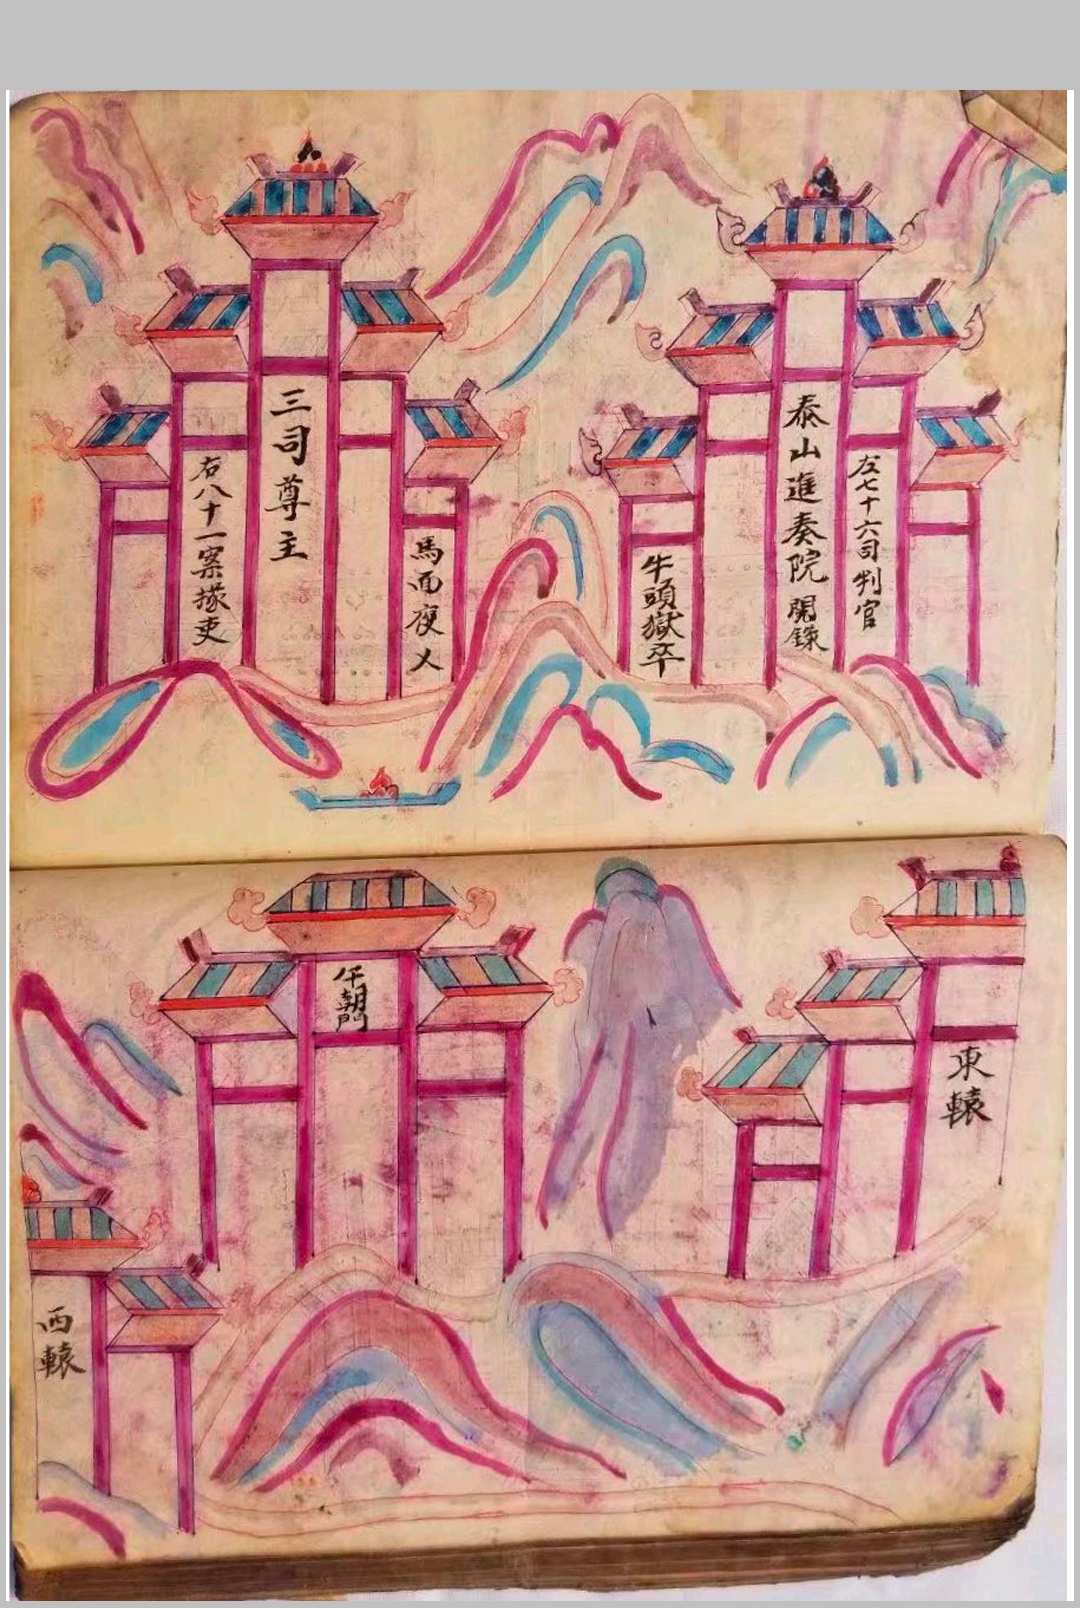 左七十六司判官
泰山進奏院開錄
牛頭獄卒
馬面夜义
三司尊主
右八十一案掾吏
東轅
午朝門
西轅